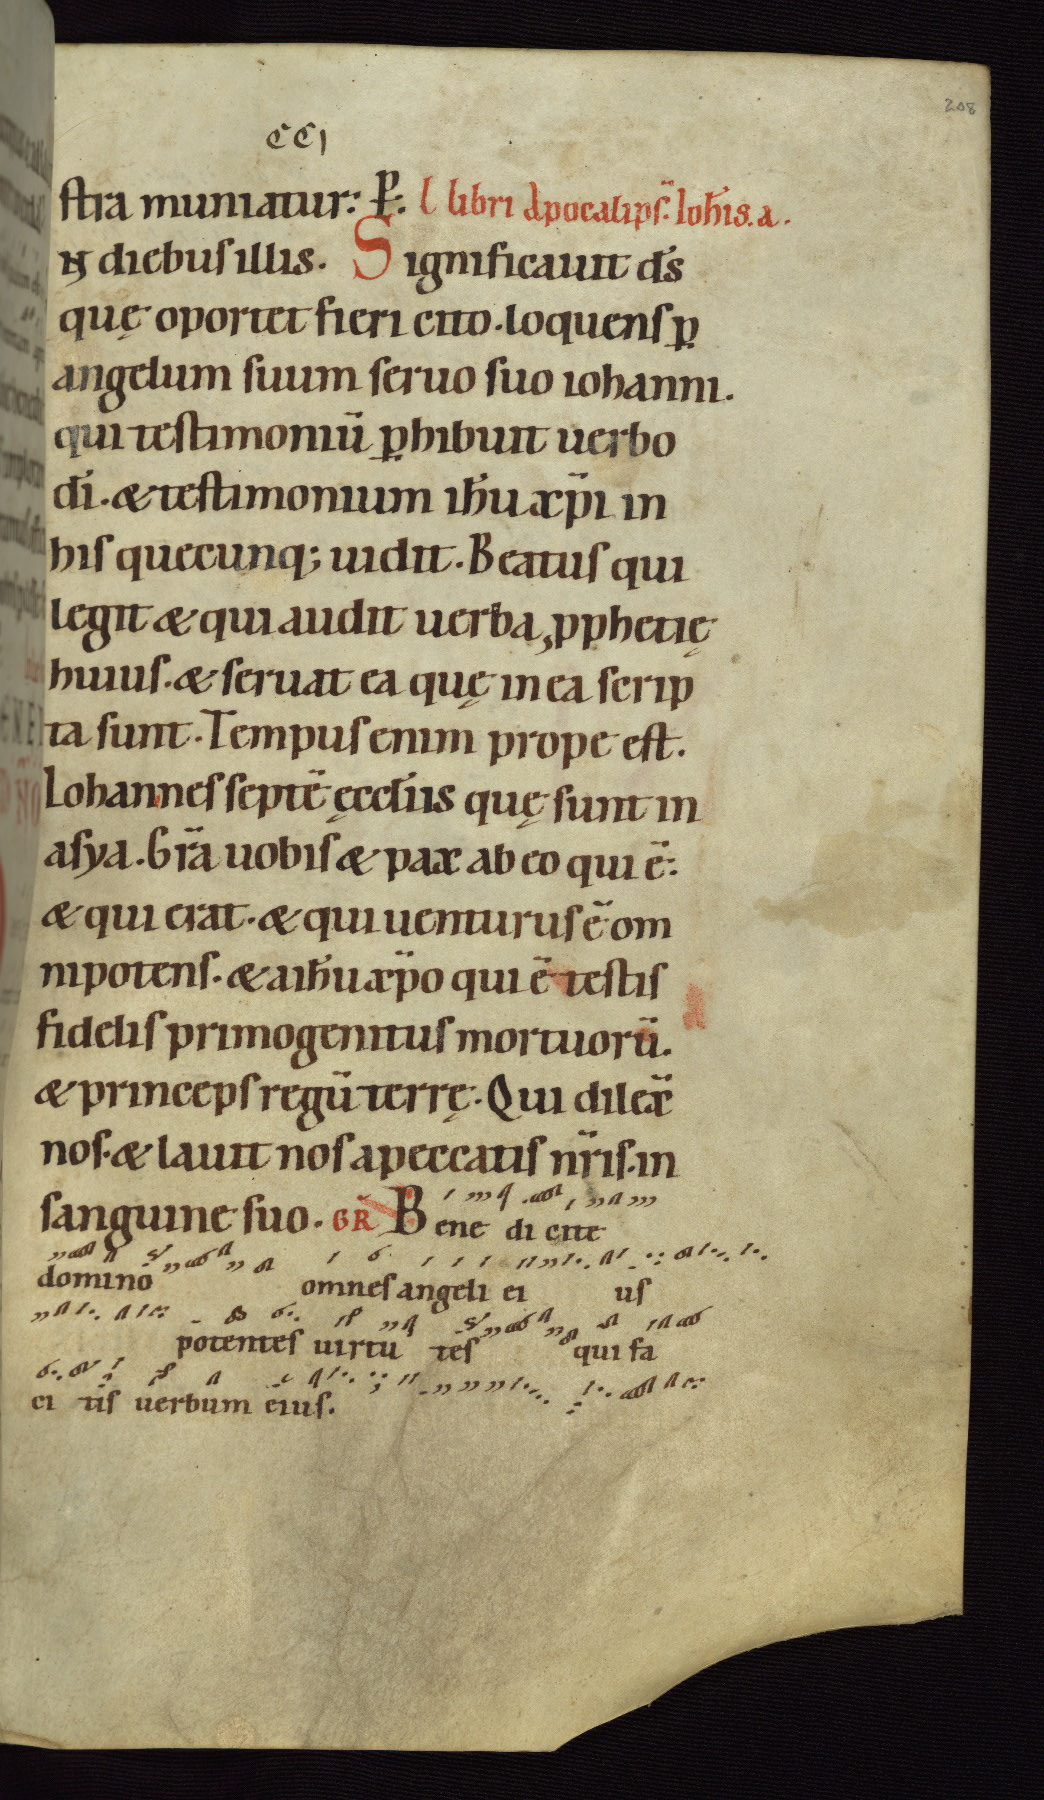 208
CCI
ſtra muniatur: P̲. L libri Apocalipſ̄. Ioh̄is. a.
IN diebuſ illis. Significauit d̄s
quę oportet fieri cito. loquenſ ꝑ
angelum ſuum ſeruo ſuo iohanni.
qui teſtimoniū ꝑhibuit uerbo
d̄i. & teſtimonium ih̄u xp̄i in
hiſ quecunq; uidit. Beatuſ qui
legit & qui audit uerba ꝓphetię
huiuſ. & ſeruat ea quę in ea ſcrip
ta ſunt. Tempuſ enim prope eſt.
Iohanneſ ſeptē ęccl̄iis quę ſunt in
aſya. Gr̄a uobiſ & pax ab eo qui ē:
& qui erat. & qui uenturuſ ē om
nipotenſ. & a ih̄u xp̄o qui ē teſtiſ
fideliſ primogenituſ mortuorū.
& princepſ regū terrę. Qui dilex̄
noſ. & lauit noſ a peccatiſ n̄riſ. in
ſanguine ſuo. GR̄ Bene di cite
domino omneſ angeli ei uſ
potenteſ uirtu teſ qui fa
ci tiſ uerbum eiuſ.